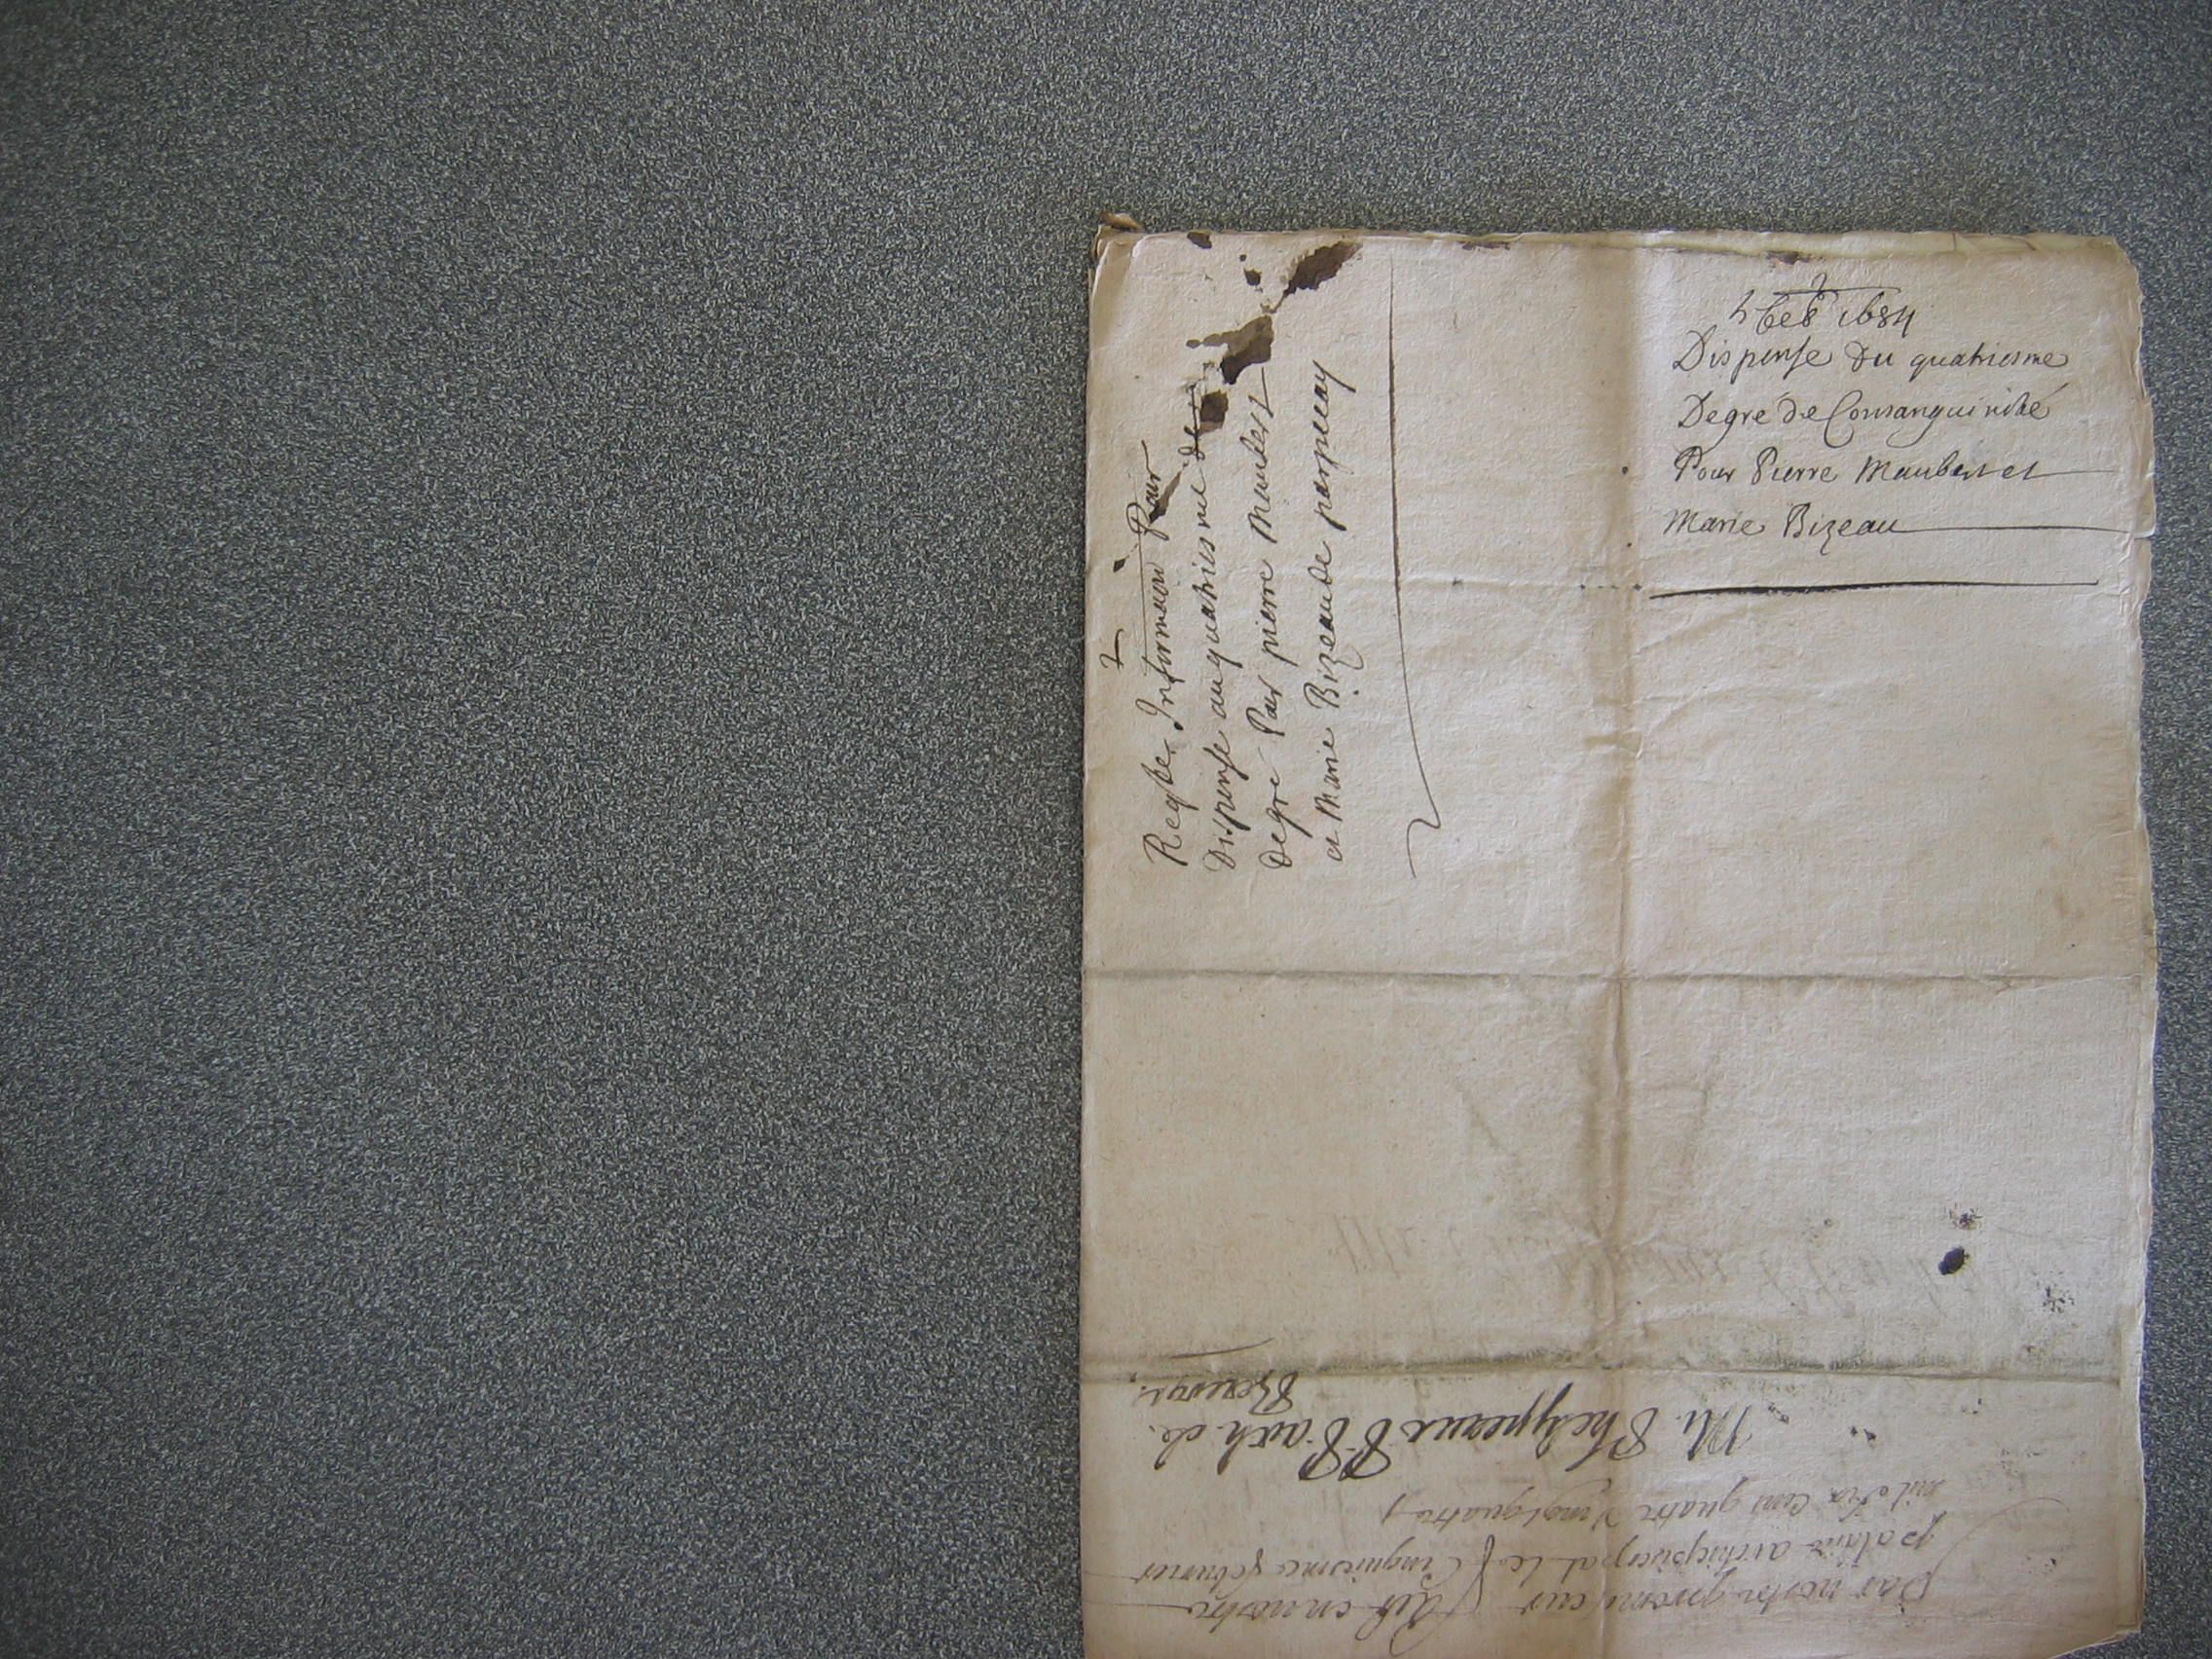 1684
Dispense du quatriesme
Degré de Consanguinité
Pour Pierre Maubert et
Marie Bizeau
Dispense au quatriesme de
degre Par pierre Maubert
et Marie Bizeau de parpecay
par nostre promoteur fait en nostre
palais archiepiscopal le Cinquiesme febvrier
mil six Cent quatre vingt quatre
M. Phelypeaux P. P. arch. de
Bourges